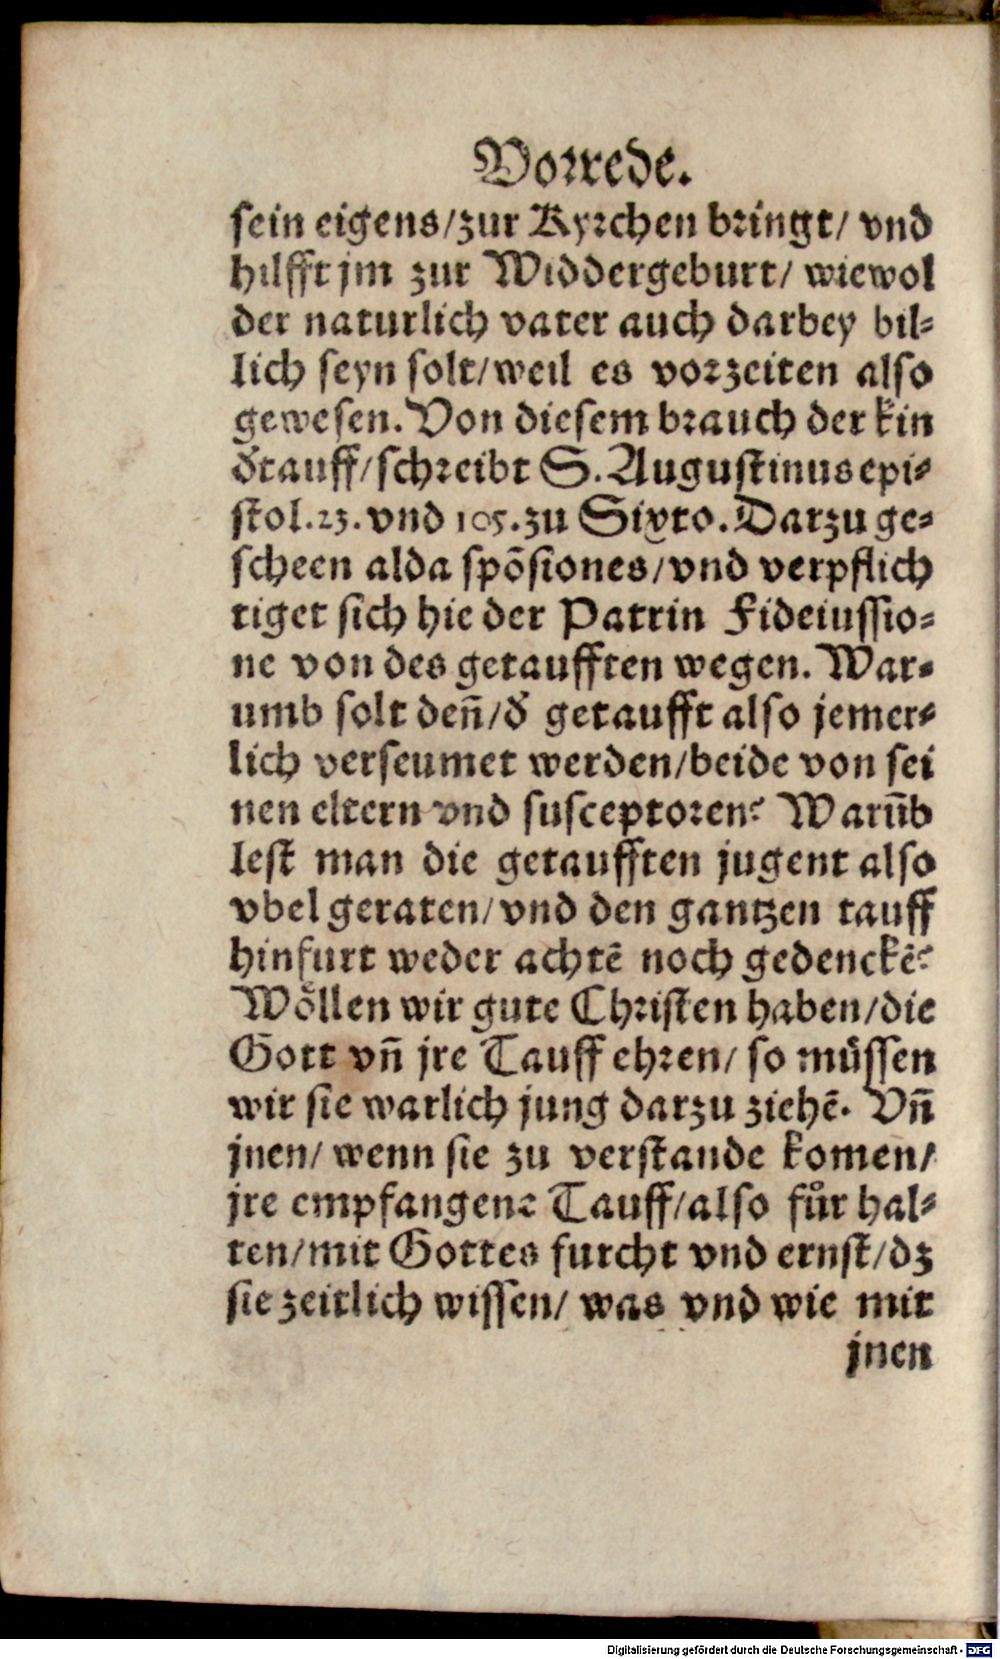 Vorrede.
sein eigens/zur Kyrchen bringt/ vnd
hilfft jm zur Widdergeburt/ wiewol
der naturlich vater auch darbey bil⸗
lich seyn solt/weil es vorzeiten also
gewesen. Von diesem brauch der kin
dtauff/schreibt S. Augustinus epi⸗
stol.23.vnd 105.zu Sixto.Darzu ge⸗
scheen alda spõsiones/vnd verpflich
tiget sich hie der Patrin Fideiussio⸗
ne von des getaufften wegen. War⸗
umb solt deñ/d̕ getaufft also jemer⸗
lich verseumet werden/beide von sei
nen eltern vnd susceptoren? Warũb
lest man die getaufften jugent also
vbel geraten/vnd den gantzen tauff
hinfurt weder achtẽ noch gedenckẽ?
Wöllen wir gute Christen haben/die
Gott vñ jre Tauff ehren/ so müssen
wir sie warlich jung darzu ziehẽ. Vñ
jnen/ wenn sie zu verstande komen/
jre empfangene Tauff/also fůr hal⸗
ten/mit Gottes furcht vnd ernst/dz
sie zeitlich wissen/ was vnd wie mit
jnen
Digitalisierung gefördert durch die Deutsche Forschungsgemeinschaft - DFG